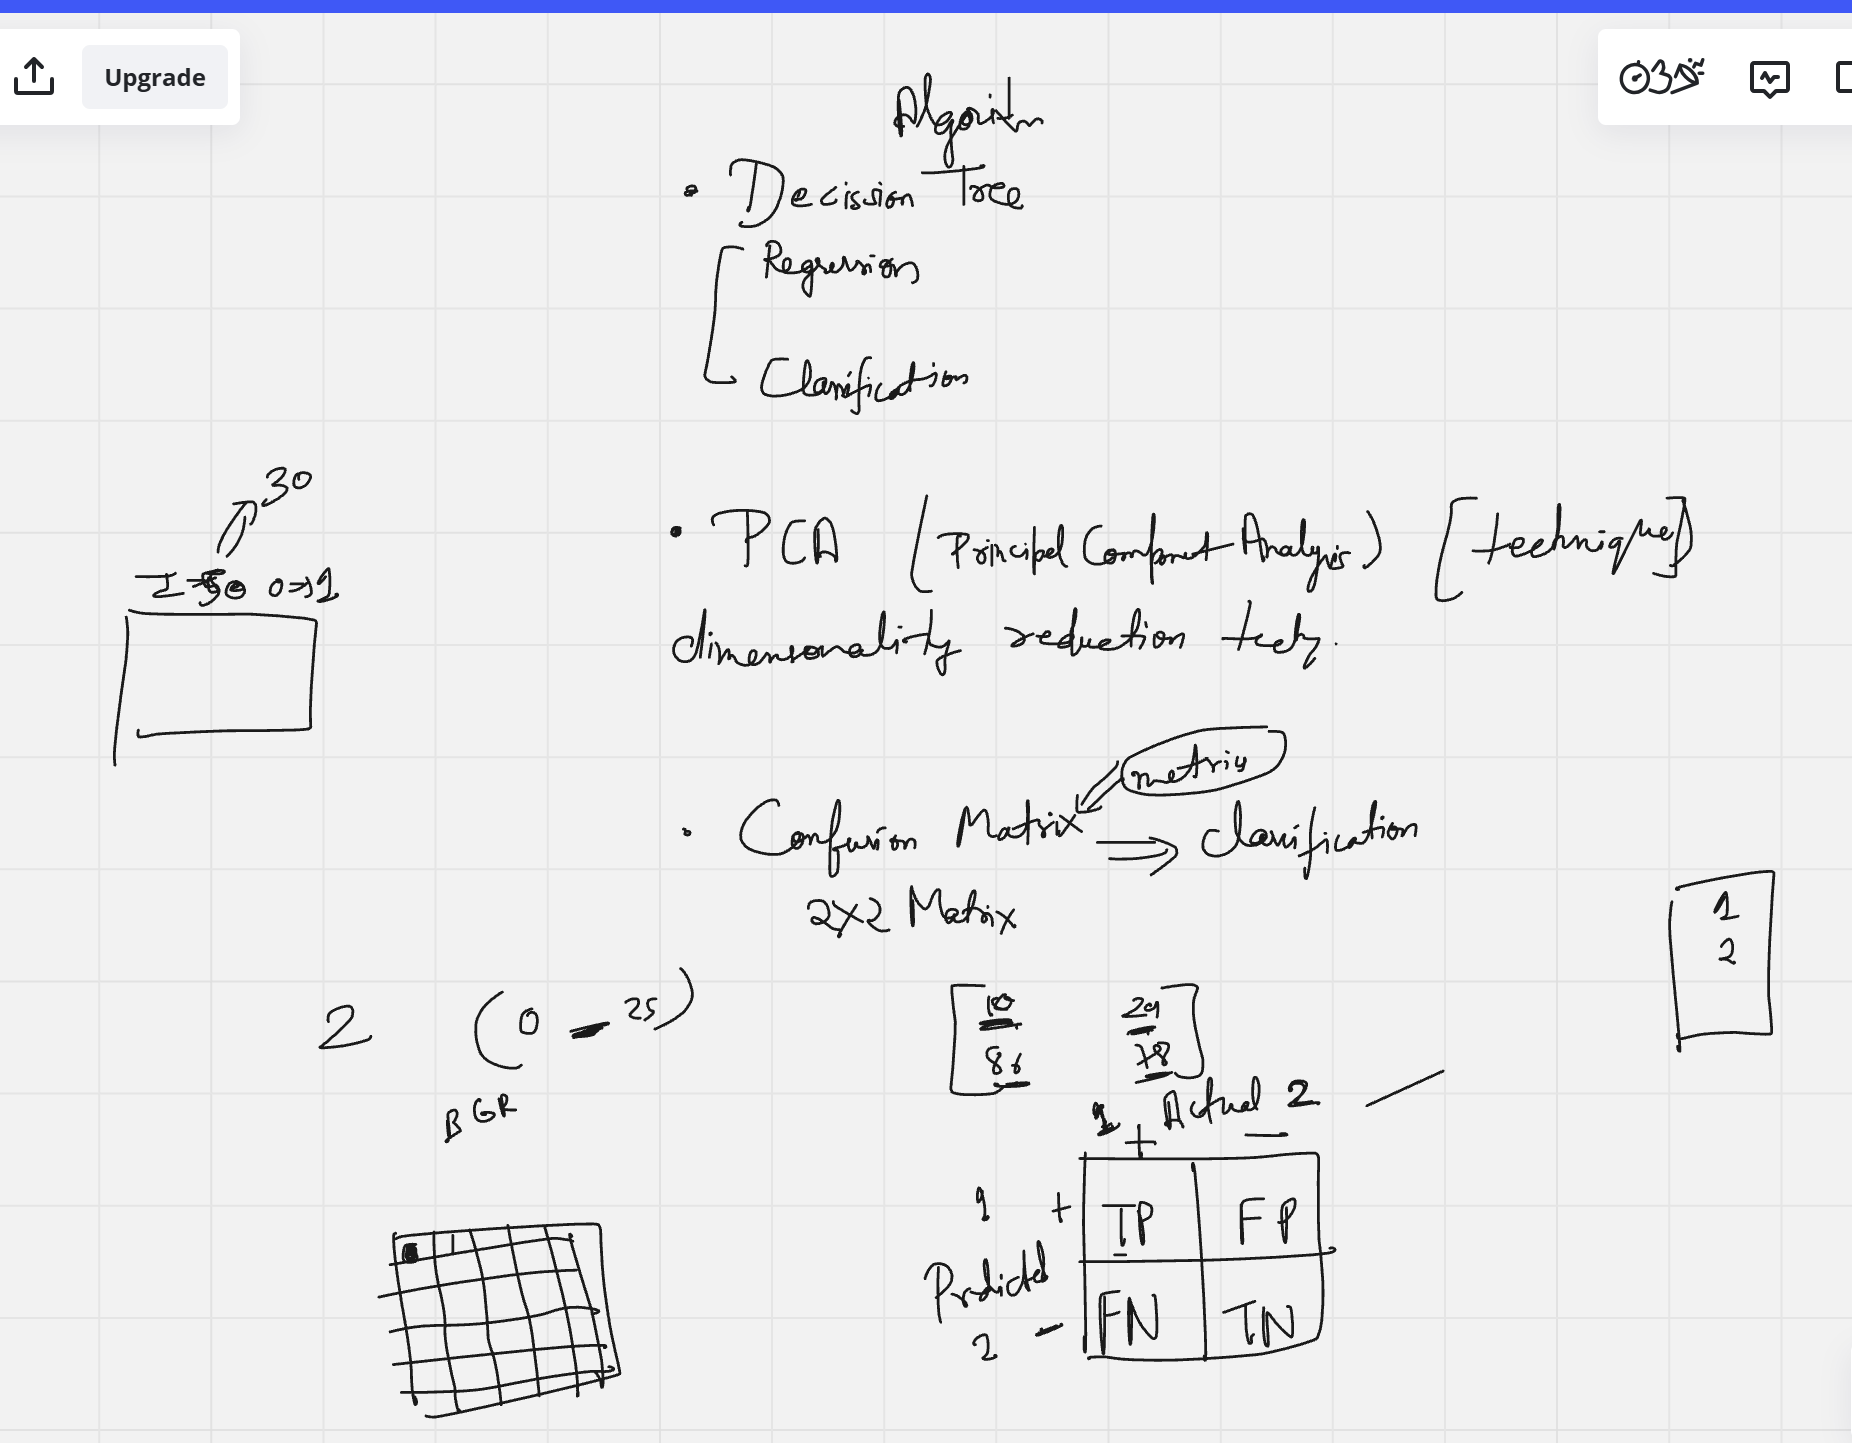 Upgrade
Algorithm
• Decission Tree
Regression
Classification
30
0→1
• PCA (Principal Component Analysis) [technique]
dimensionality reduction tech.
metrix
• Confusion Matrix ⇒ Classification
2x2 Matrix
1
2
2 (0 - 25)
10 29
86 78
BGR
1 Actual 2
+ -
1 + TP FP
Predicted
2 - FN TN